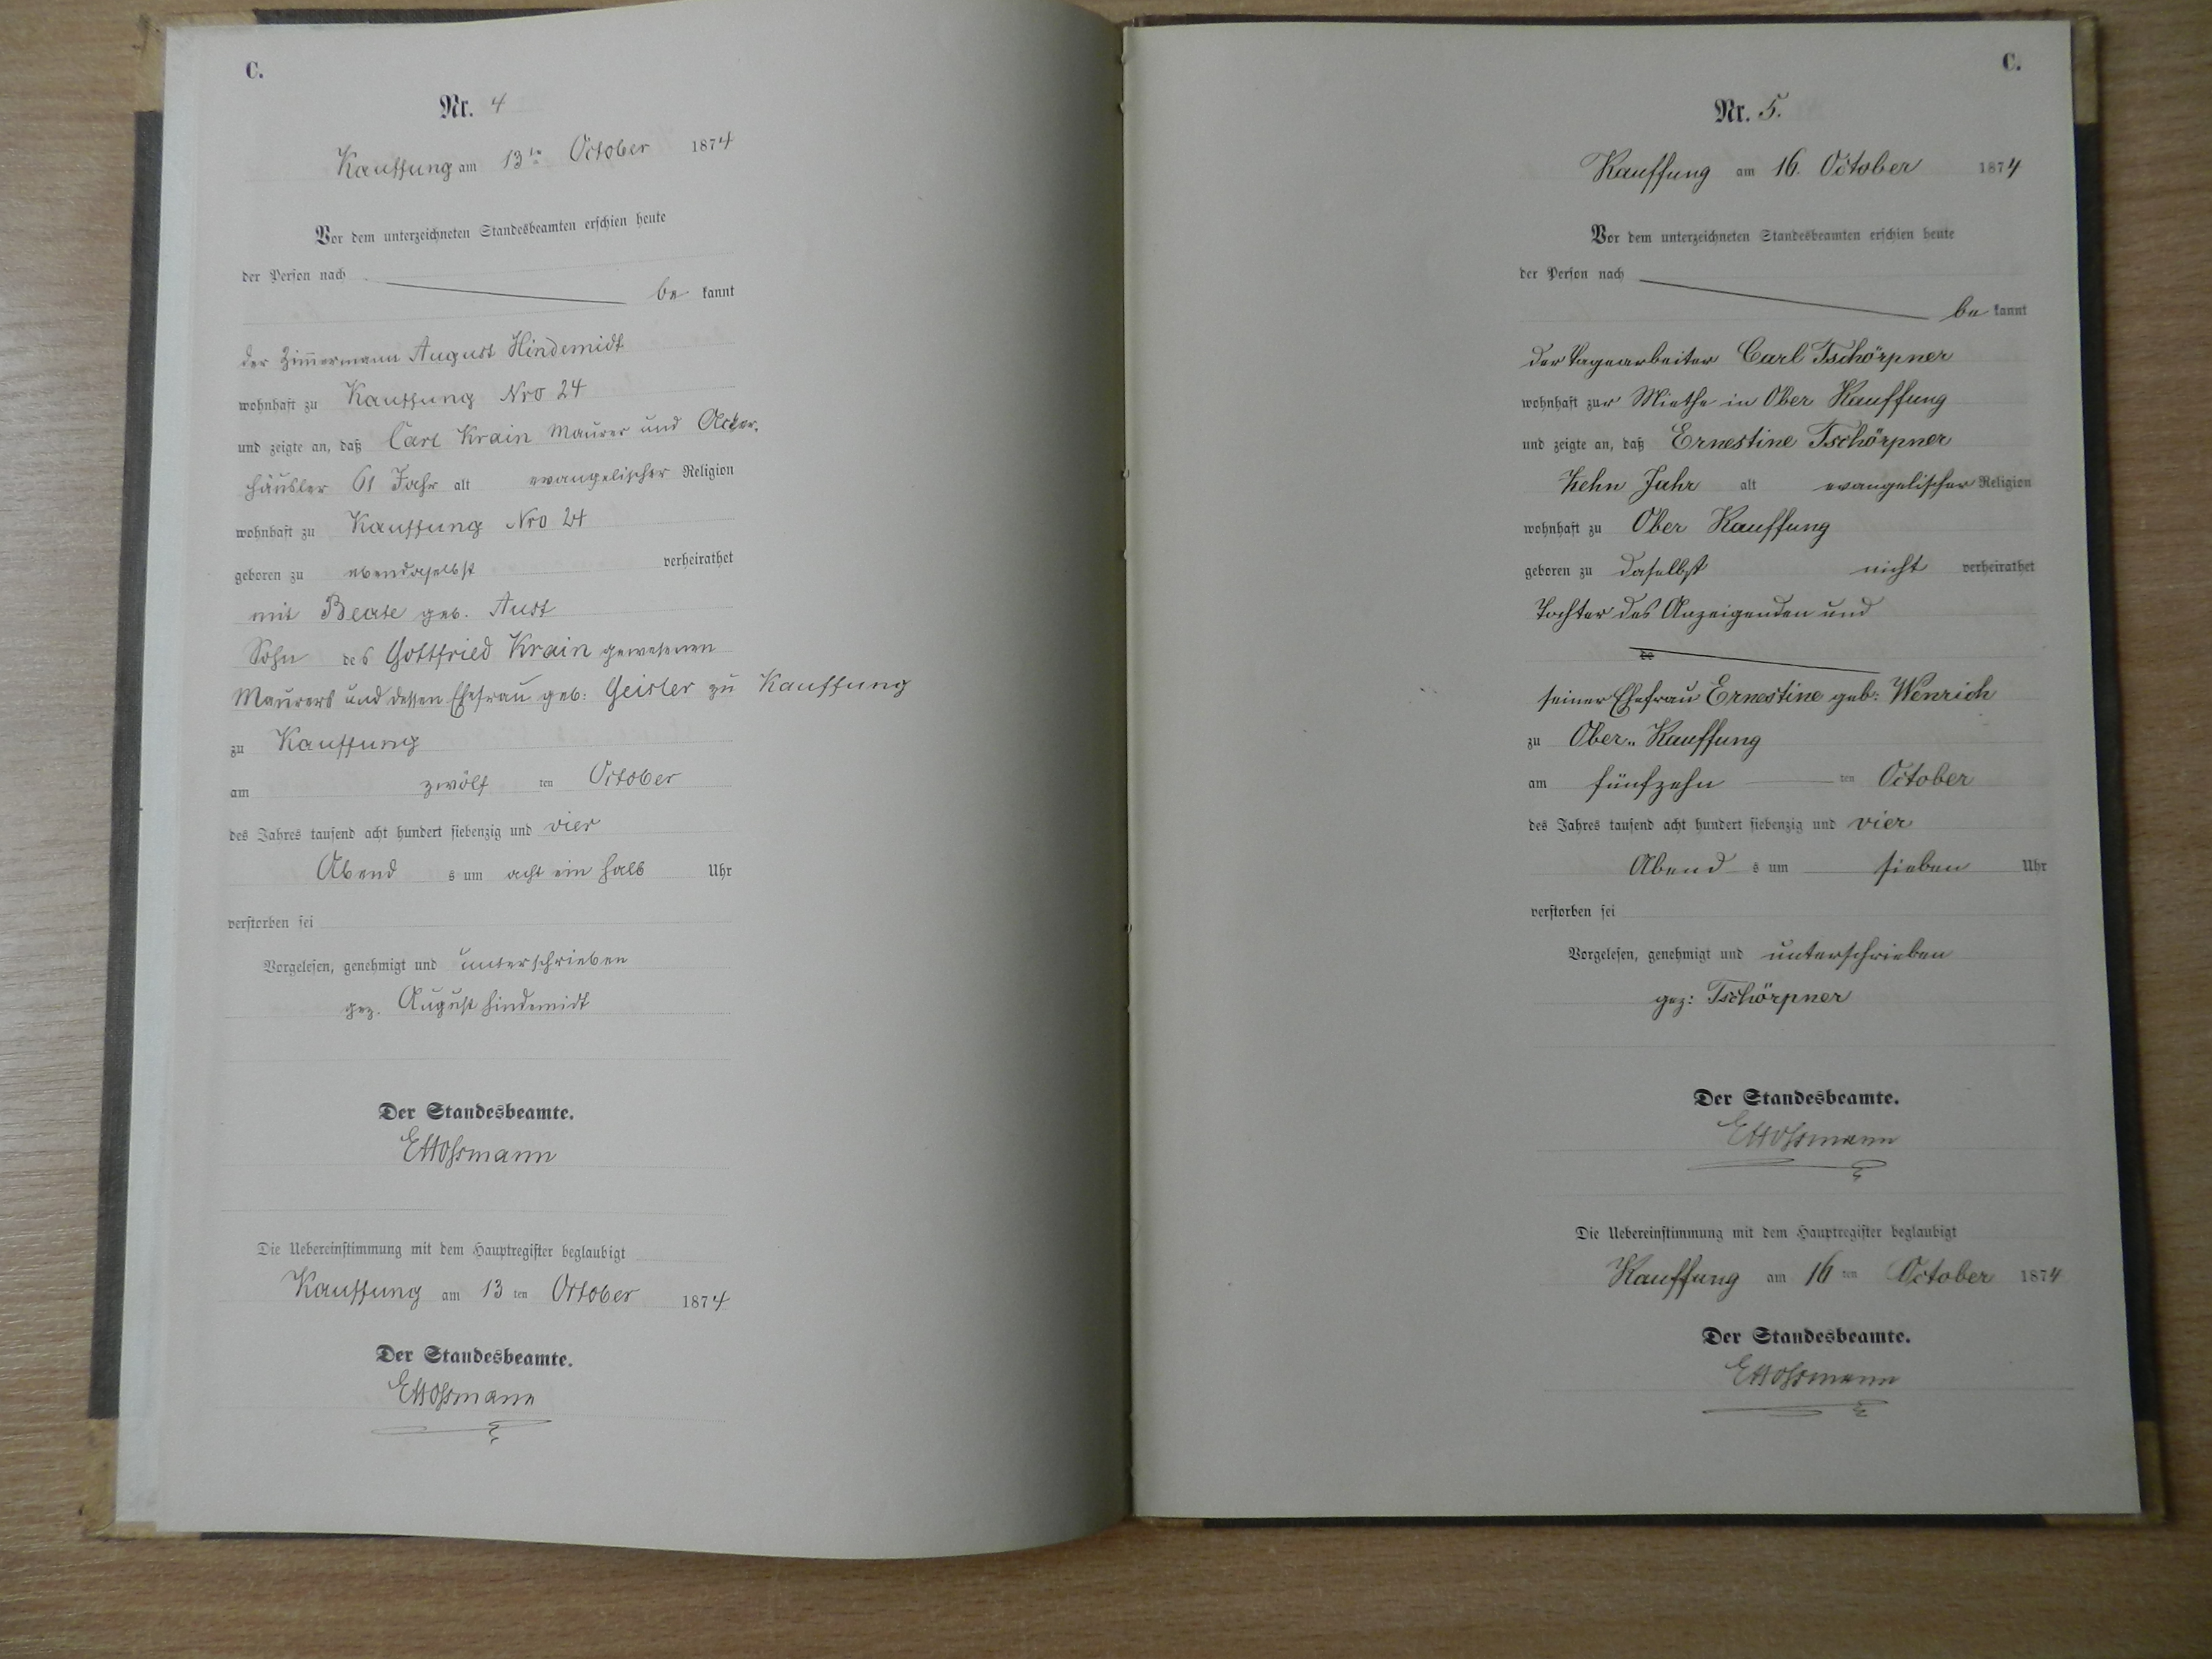 C.
Nr. 4
Kauffung am 13ten October 1874
Vor dem unterzeichneten Standesbeamten erschien heute
der Person nach
be kannt
der Zimmermann August Hindemidt
wohnhaft zu Kauffung Nro 24
und zeigte an, daß Carl Krain Maurer und Acker-
häusler 61 Jahr alt evangelischer Religion
wohnhaft zu Kauffung Nro 24
geboren zu ebendaselbst verheirathet
mit Beate geb. Aust
Sohn des Gottfried Krain gewesenen
Maurers und dessen Ehefrau geb: Geisler zu Kauffung
zu Kauffung
am zwölf ten October
des Jahres tausend acht hundert siebenzig und vier
Abend s um acht ein halb Uhr
verstorben sei
Vorgelesen, genehmigt und unterschrieben
gez. August Hindemidt
Der Standesbeamte.
Die Uebereinstimmung mit dem Hauptregister beglaubigt
Kauffung am 13 ten October 1874
Der Standesbeamte.
C.
Nr. 5.
Kauffung am 16. October 1874
Vor dem unterzeichneten Standesbeamten erschien heute
der Person nach
be kannt
der Tagearbeiter Carl Tschörpner
wohnhaft zur Miethe in Ober Kauffung
und zeigte an, daß Ernestine Tschörpner
Zehn Jahr alt evangelischer Religion
wohnhaft zu Ober Kauffung
geboren zu daselbst nicht verheirathet
Tochter des Anzeigenden und
de
seiner Ehefrau Ernestine geb: Wenrich
zu Ober-Kauffung
am fünfzehn ten October
des Jahres tausend acht hundert siebenzig und vier
Abend s um sieben Uhr
verstorben sei
Vorgelesen, genehmigt und unterschrieben
gez: Tschörpner
Der Standesbeamte.
Die Uebereinstimmung mit dem Hauptregister beglaubigt
Kauffung am 16 ten October 1874
Der Standesbeamte.